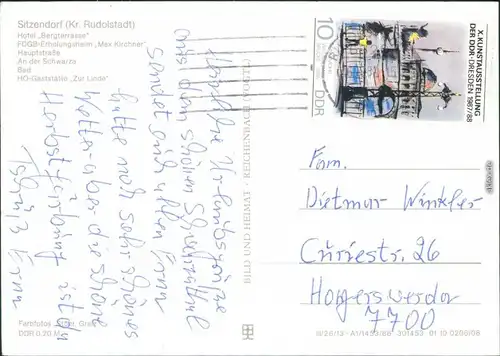 Sitzendorf (Kr. Rudolstadt)
Hotel „Bergterrasse"
FDGB-Erholungsheim „Max Kirchner"
Hauptstraße
An der Schwarza
Bad
HO-Gaststätte „Zur Linde"
Herzliche Urlaubsgrüße
aus dem schönen Schwarzatal
sendet euch allen Erna
hatte noch sehr schönes
Wetter aber die schöne
Herbstfärbung ist da
Tschüß Erna
BILD UND HEIMAT · REICHENBACH (VOGTL)
10
DDR
X. KUNSTAUSSTELLUNG
DER DDR · DRESDEN 1987/88
Fam.
Dietmar Winkler
Curiestr. 26
Hoyerswerda
7700
Farbfotos
DDR 0,20 M
301453 01 10 02/06/08